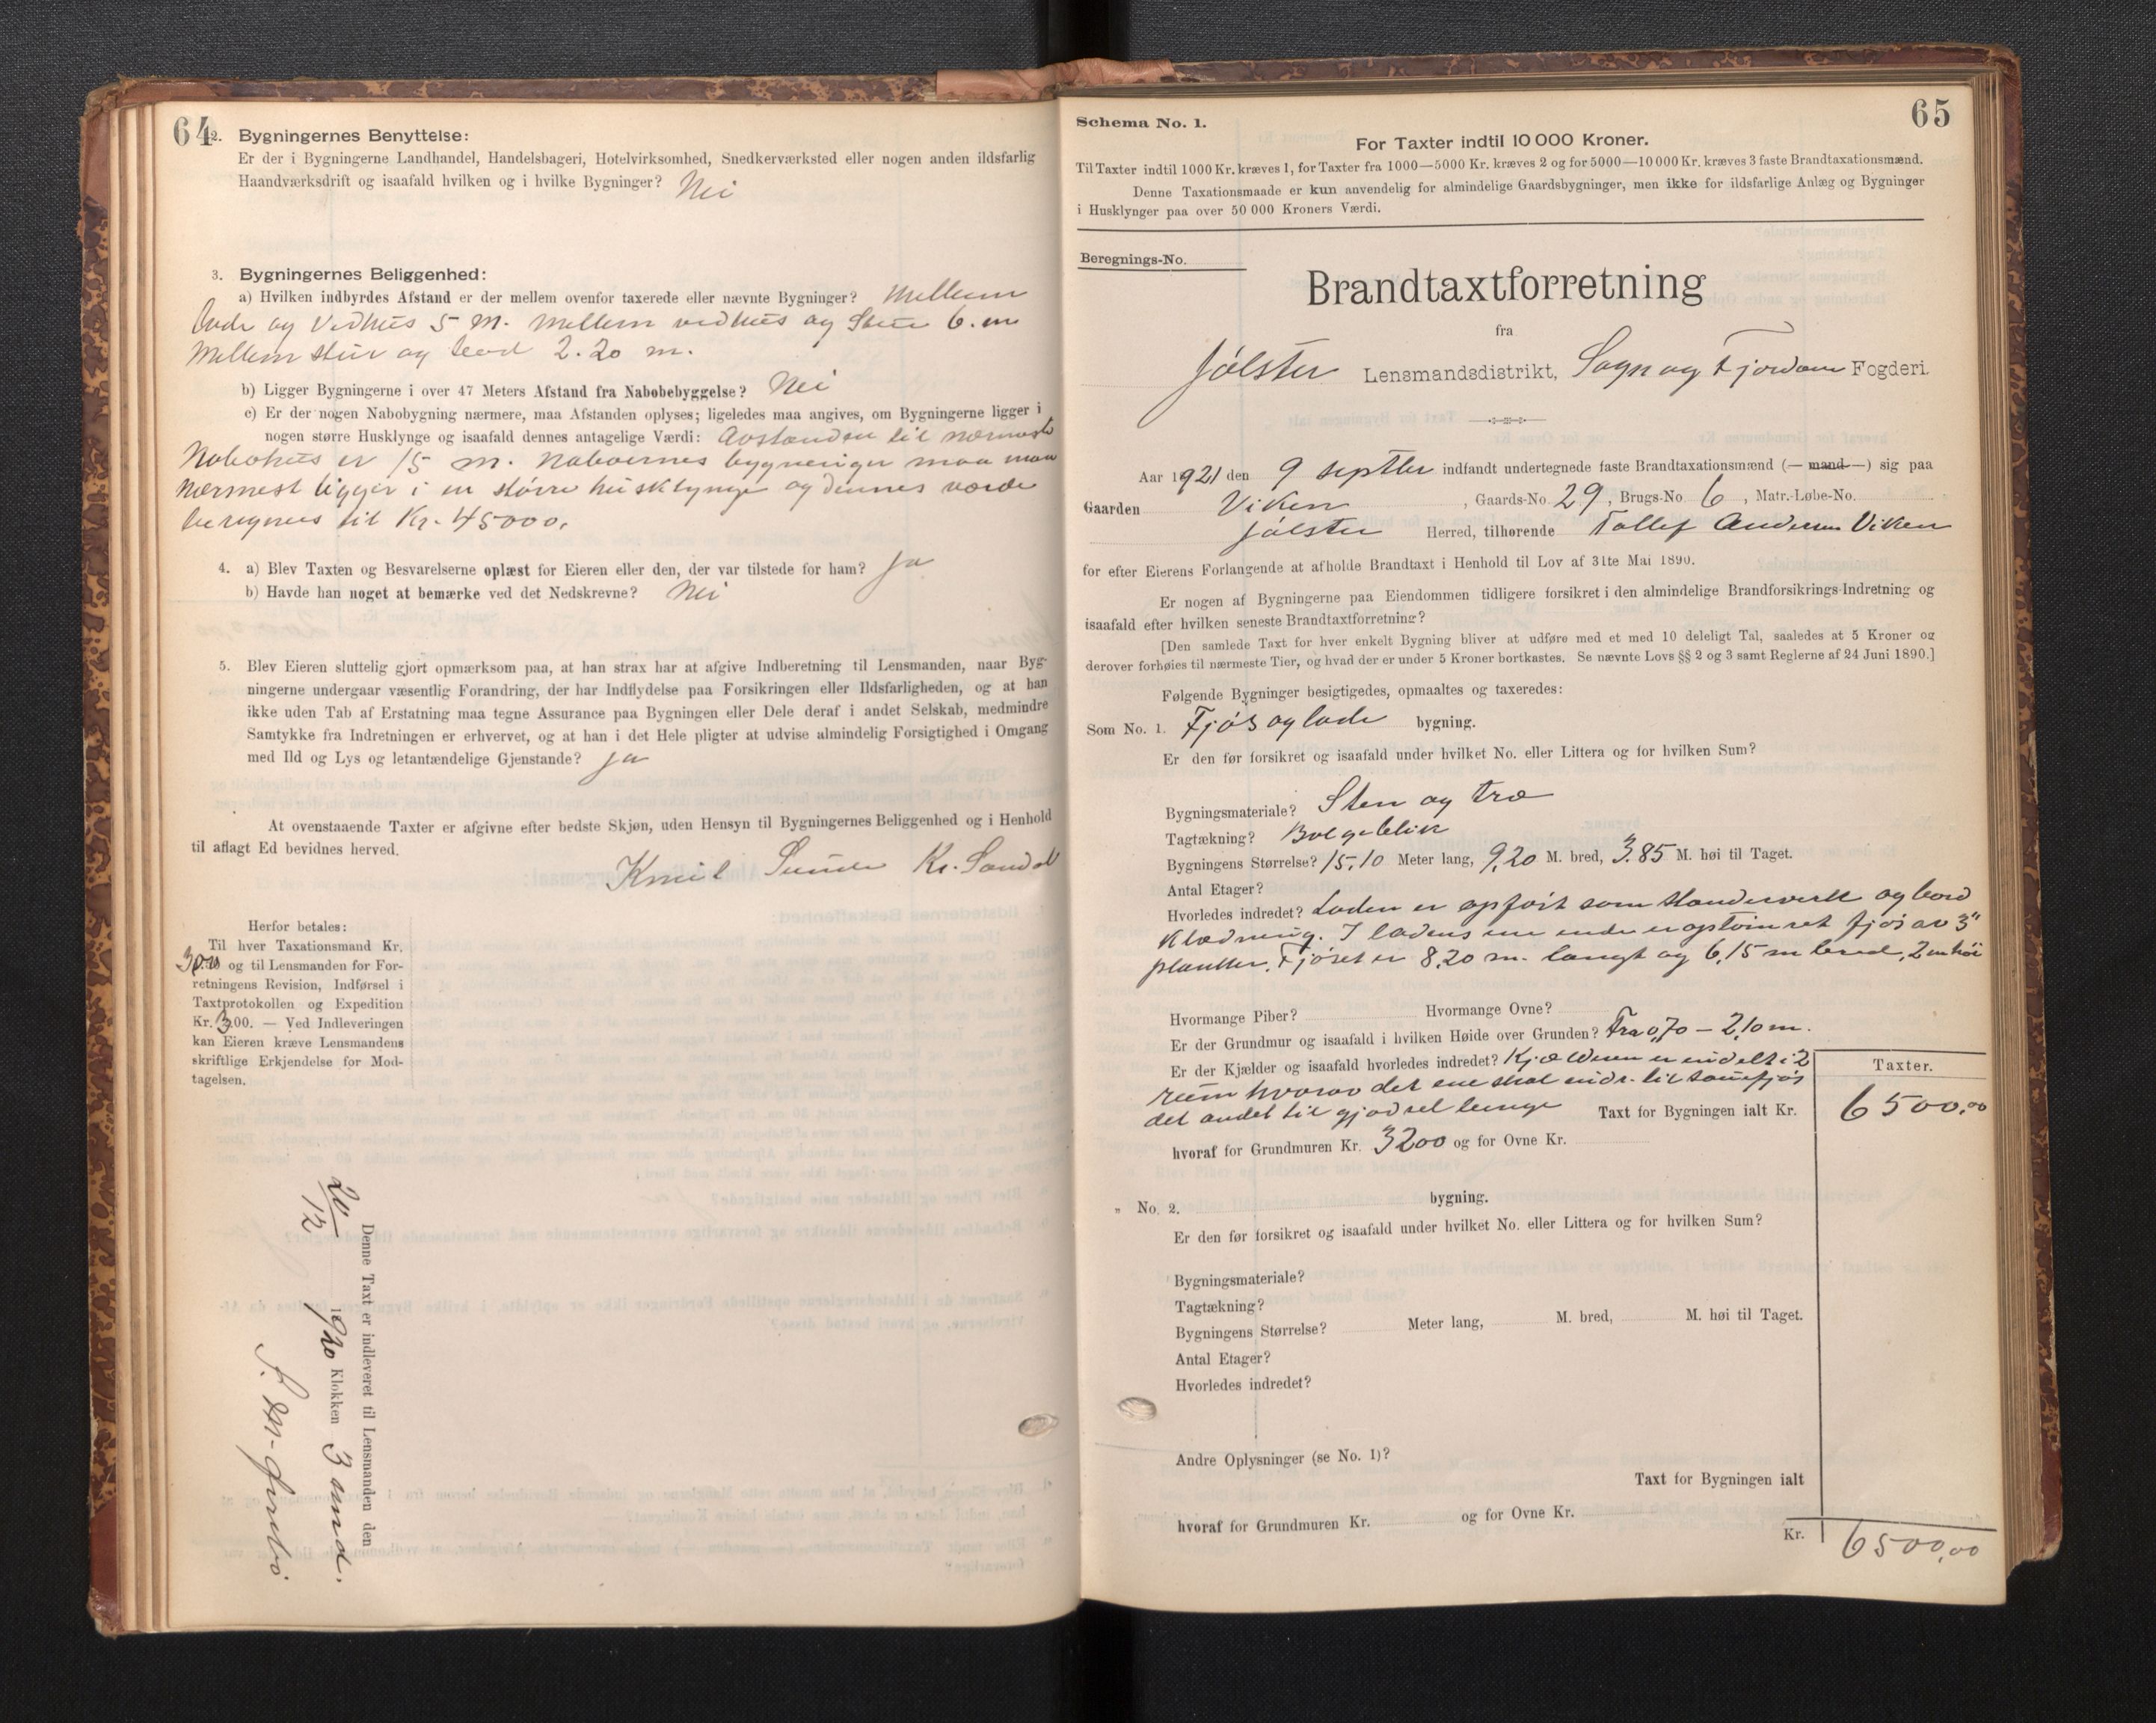 64
2. Bygningernes Benyttelse:
Er der i Bygningerne Landhandel, Handelsbageri, Hotelvirksomhed, Snedkerværksted eller nogen anden ildsfarlig
Haandværksdrift og isaafald hvilken og i hvilke Bygninger? Nei
3. Bygningernes Beliggenhed:
a) Hvilken indbyrdes Afstand er der mellem ovenfor taxerede eller nævnte Bygninger? Mellem
lade og Vedhus 5 m. mellem vedhus og Stue 6. m
Mellem stue og 2.20 m.
b) Ligger Bygningerne i over 47 Meters Afstand fra Nabobebyggelse? Nei
c) Er der nogen Nabobygning nærmere, maa Afstanden oplyses; ligeledes maa angives, om Bygningerne ligger i
nogen større Husklynge og isaafald dennes antagelige Værdi: Avstanden til nærmeste
Nabohus er 15 m. Naboernes bygninger maa man
nærmest ligger i en större husklynge og dennes værde
beregnes til Kr. 45000.
4. a) Blev Taxten og Besvarelserne oplæst for Eieren eller den, der var tilstede for ham? Ja
b) Havde han noget at bemærke ved det Nedskrevne? Nei
5. Blev Eieren sluttelig gjort opmærksom paa, at han strax har at afgive Indberetning til Lensmanden, naar Byg-
ningerne undergaar væsentlig Forandring, der har Indflydelse paa Forsikringen eller Ildsfarligheden, og at han
ikke uden Tab af Erstatning maa tegne Assurance paa Bygningen eller Dele deraf i andet Selskab, medmindre
Samtykke fra Indretningen er erhvervet, og at han i det Hele pligter at udvise almindelig Forsigtighed i Omgang
med Ild og Lys og letantændelige Gjenstande? Ja
At ovenstaaende Taxter er afgivne efter bedste Skjøn, uden Hensyn til Bygningernes Beliggenhed og i Henhold
til aflagt Ed bevidnes herved.
Sunde Kr. Sandal
Herfor betales:
Til hver Taxationsmand Kr.
3,00 og til Lensmanden for For-
retningens Revision, Indførsel i
Taxtprotokollen og Expedition
Kr. 3.00. — Ved Indleveringen
kan Eieren kræve Lensmandens
skriftlige Erkjendelse for Mod-
tagelsen.
Denne Taxt er indleveret til Lensmanden den
20/12 1920 Klokken 3 emd.
65
Schema No. 1.
For Taxter indtil 10 000 Kroner.
Til Taxter indtil 1000 Kr. kræves 1, for Taxter fra 1000—5000 Kr. kræves 2 og for 5000—10 000 Kr. kræves 3 faste Brandtaxationsmænd.
Denne Taxationsmaade er kun anvendelig for almindelige Gaardsbygninger, men ikke for ildsfarlige Anlæg og Bygninger
i Husklynger paa over 50 000 Kroners Værdi.
Beregnings-No.
Brandtaxtforretning
fra
Jölster Lensmandsdistrikt, Sogn og Fjordane Fogderi.
Aar 1921 den 9 septbr indfandt undertegnede faste Brandtaxationsmænd (— mand —) sig paa
Gaarden Viken, Gaards-No. 29, Brugs-No. 6, Matr.-Løbe-No.
Jølster Herred, tilhørende Tollef Andersen Viken
for efter Eierens Forlangende at afholde Brandtaxt i Henhold til Lov af 31te Mai 1890.
Er nogen af Bygningerne paa Eiendommen tidligere forsikret i den almindelige Brandforsikrings-Indretning og
isaafald efter hvilken seneste Brandtaxtforretning?
[Den samlede Taxt for hver enkelt Bygning bliver at udføre med et med 10 deleligt Tal, saaledes at 5 Kroner og
derover forhøies til nærmeste Tier, og hvad der er under 5 Kroner bortkastes. Se nævnte Lovs §§ 2 og 3 samt Reglerne af 24 Juni 1890.]
Følgende Bygninger besigtigedes, opmaaltes og taxeredes:
Som No. 1. Fjös og lade bygning.
Er den før forsikret og isaafald under hvilket No. eller Littera og for hvilken Sum?
Bygningsmateriale? Sten og træ
Tagtækning? Bølgeblik
Bygningens Størrelse? 15,10 Meter lang, 9,20 M. bred, 3.85 M. høi til Taget.
Antal Etager?
Hvorledes indredet? Laden er opfört som standerverk og bord
klædning. I ladens ene ende er optömret fjös av 3"
planker. Fjöset er 8,20 m. langt og 6,15 m bred, 2 m höi
Hvormange Piber? Hvormange Ovne?
Er der Grundmur og isaafald i hvilken Høide over Grunden? Fra 0,70 — 2,10 m.
Er der Kjælder og isaafald hvorledes indredet? Kjælderen er inddelt i 2
rum hvorav det ene skal indr. til sauefjös
det andet til gjødsel binge Taxt for Bygningen ialt Kr.
Taxter.
6500,00
hvoraf for Grundmuren Kr. 3200 og for Ovne Kr.
" No. 2. bygning.
Er den før forsikret og isaafald under hvilket No. eller Littera og for hvilken Sum?
Bygningsmateriale?
Tagtækning?
Bygningens Størrelse? Meter lang, M. bred, M. høi til Taget.
Antal Etager?
Hvorledes indredet?
Andre Oplysninger (se No. 1)?
Taxt for Bygningen ialt
hvoraf for Grundmuren Kr. og for Ovne Kr.
Kr. 6500,00